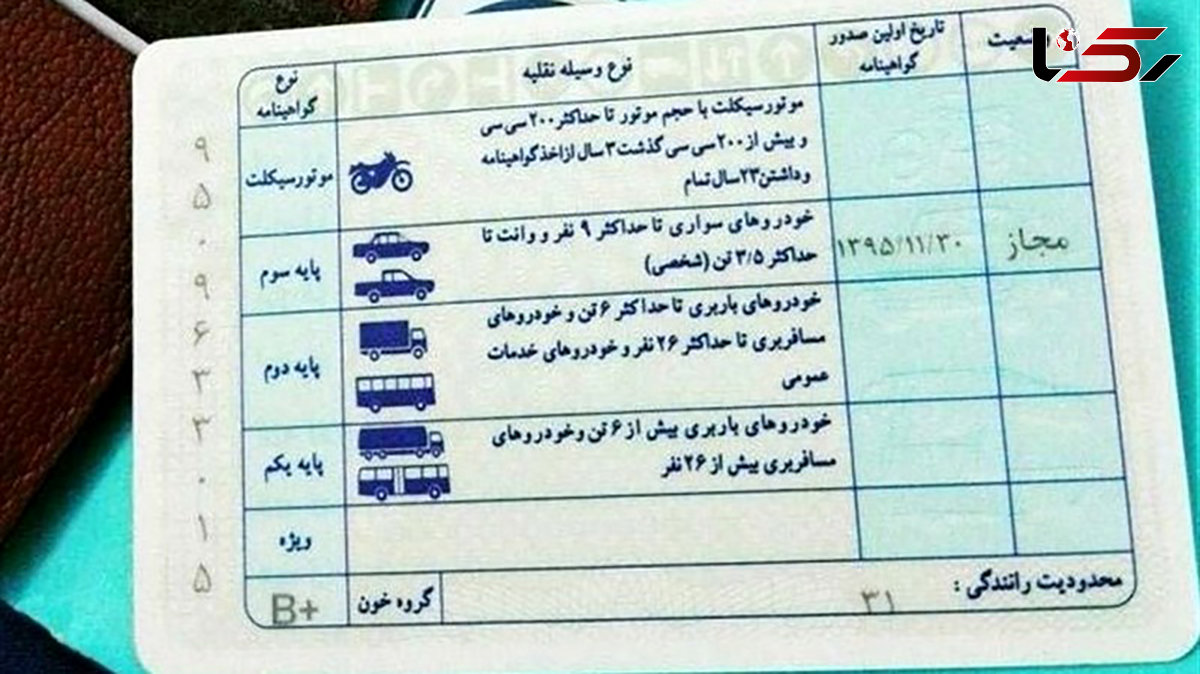 رکنا
نوع گواهینامه
نوع وسیله نقلیه
تاریخ اولین صدور گواهینامه
وضعیت
موتورسیکلت
موتورسیکلت با حجم موتور تا حداکثر ۲۰۰ سی سی
و بیش از ۲۰۰ سی سی گذشت ۳ سال از اخذ گواهینامه
و داشتن ۲۳ سال تمام
پایه سوم
خودروهای سواری تا حداکثر ۹ نفر و وانت تا
حداکثر ۳/۵ تن (شخصی)
۱۳۹۵/۱۱/۳۰
مجاز
پایه دوم
خودروهای باربری تا حداکثر ۶ تن و خودروهای
مسافربری تا حداکثر ۲۶ نفر و خودروهای خدمات
عمومی
پایه یکم
خودروهای باربری بیش از ۶ تن و خودروهای
مسافربری بیش از ۲۶ نفر
ویژه
محدودیت رانندگی :
۳۱
گروه خون
B+
۹
۵
۰
۹
۶
۳
۳
۰
۱
۵